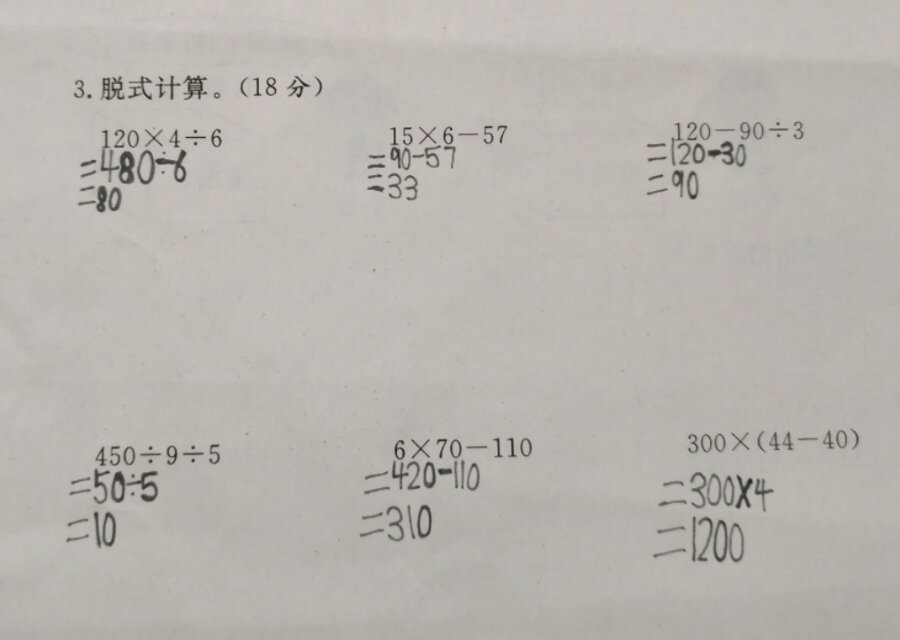 3.脱式计算。(18分)
120×4÷6
=480÷6
=80
15×6－57
=90-57
=33
120－90÷3
=120-30
=90
450÷9÷5
=50÷5
=10
6×70－110
=420-110
=310
300×(44－40)
=300×4
=1200